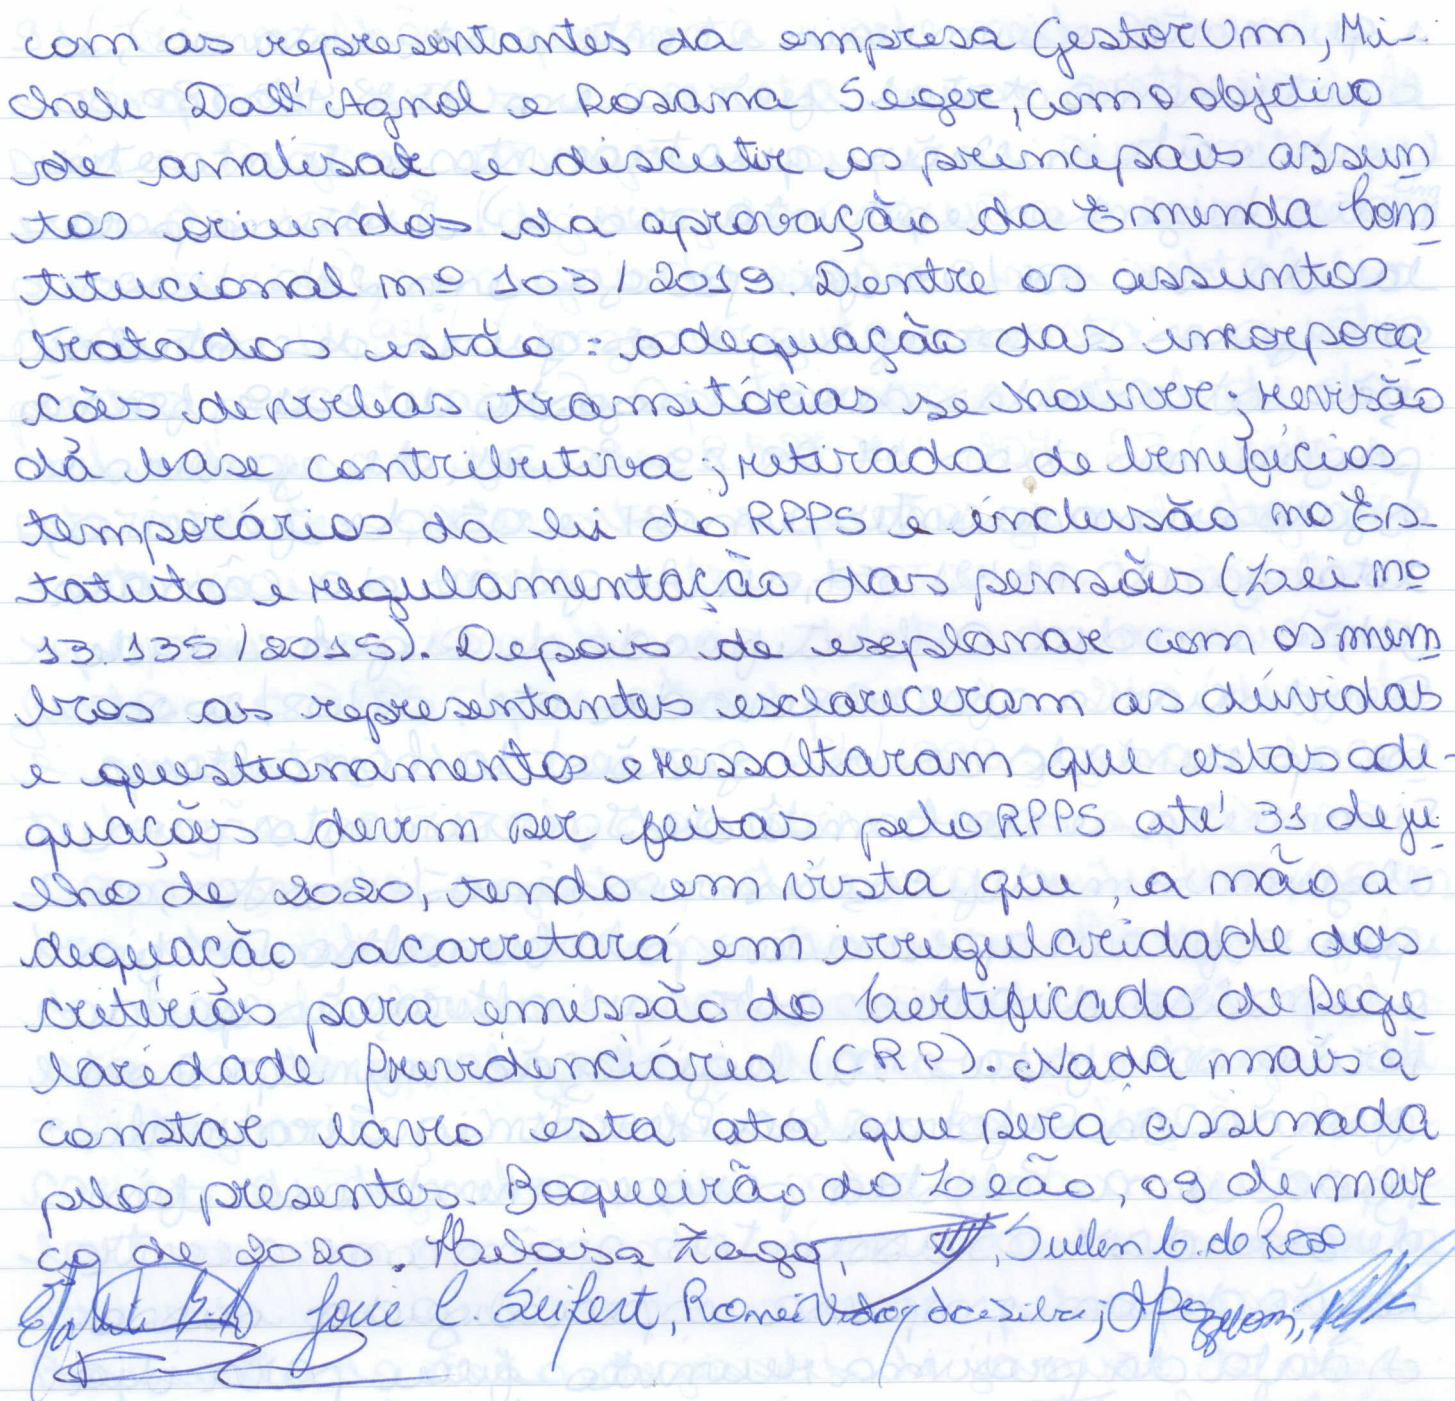 com as representantes da empresa GestorUm, Mi-
chele Dall' Agnol e Rosana Seger, com o objetivo
de analisar e discutir os principais assun
tos oriundos da aprovação da Emenda Cons
titucional nº 103/2019. Dentre os assuntos
tratados estão: adequação das incorpora
ções de verbas transitórias se houver; revisão
da base contributiva; retirada de benefícios
temporários da lei do RPPS e inclusão no Es-
tatuto e regulamentação das pensões (Lei nº
13.135/2015). Depois de explanar com os mem
bros as representantes esclareceram as dúvidas
e questionamentos e ressaltaram que estas ade-
quações devem ser feitas pelo RPPS até 31 de ju
lho de 2020, tendo em vista que, a não a-
dequação acarretará em irregularidade dos
critérios para emissão do Certificado de Regu
laridade Previdenciária (CRP). Nada mais a
constar lavro esta ata que será assinada
pelos presentes. Boqueirão do Leão, 09 de mar
ço de 2020. Heloisa Zago, Suelen C. do
C. Seifert, da Silva;